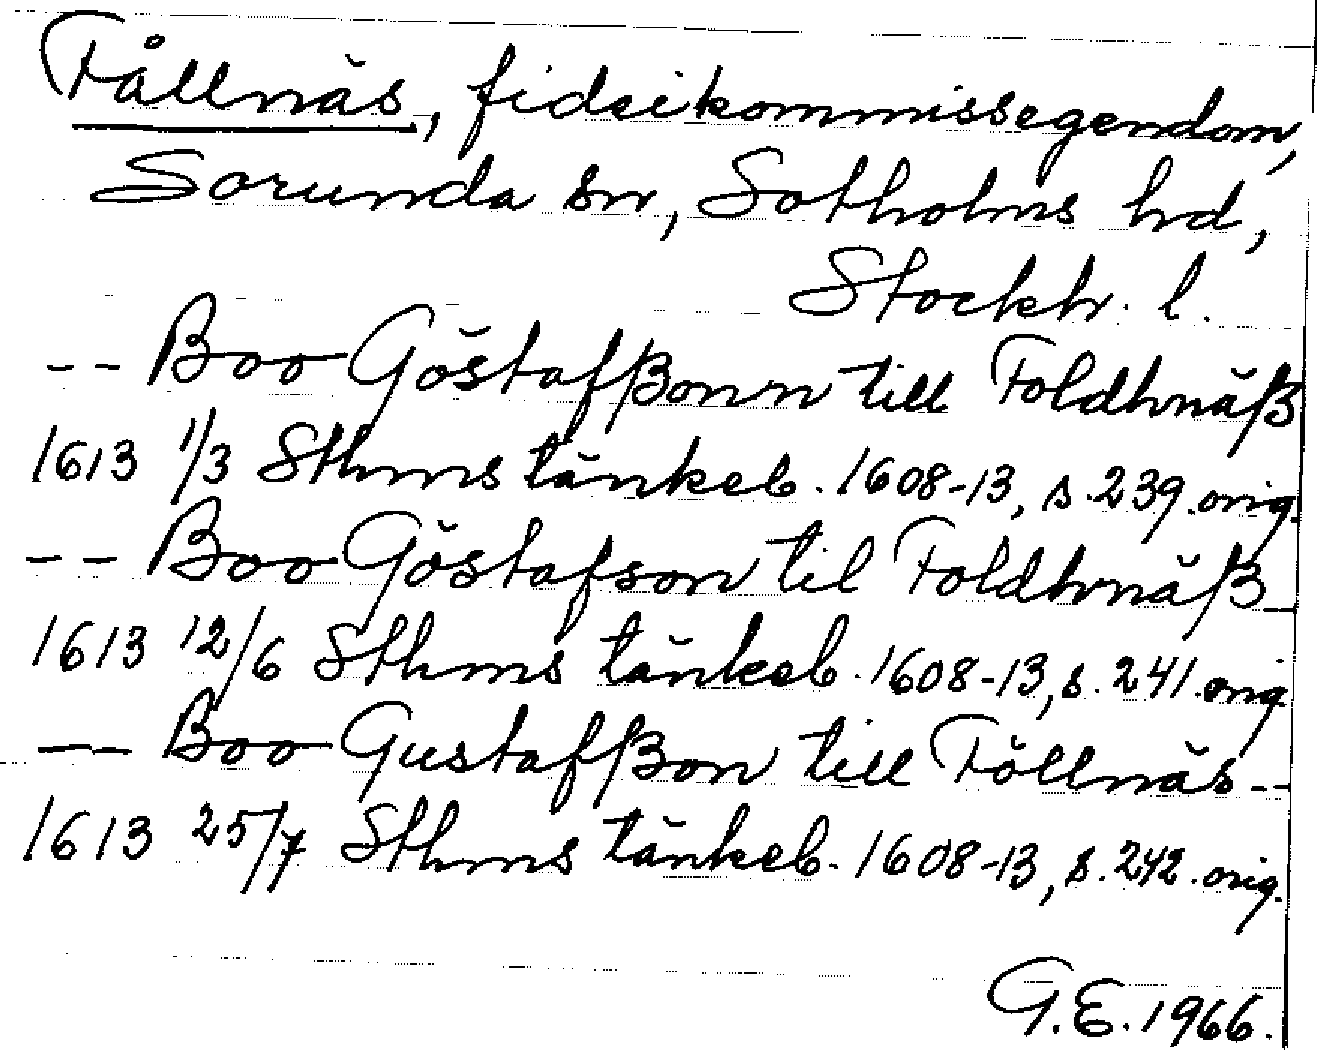 Fållnäs, fideikommissegendom,
Sorunda sn, Sotholms hd,
Stockh. l.
-- Boo Göstafßonn till Foldhnäß
1613 1/3 Sthms tänkeb. 1608-13, s. 239. orig.
-- Boo Göstafson til Foldhnäß --
1613 12/6 Sthms tänkeb. 1608-13, s. 241. orig.
-- Boo Gustafßon till Föllnäs --
1613 25/7 Sthms tänkeb. 1608-13, s. 242. orig.
G.E. 1966.